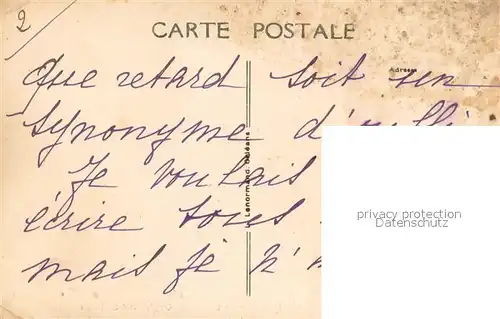 2
CARTE POSTALE
Adresse
Que retard soit un
synonyme
Je voulais
écrire tous
mais je n'
Lenormand, Orléans
privacy protection
Datenschutz